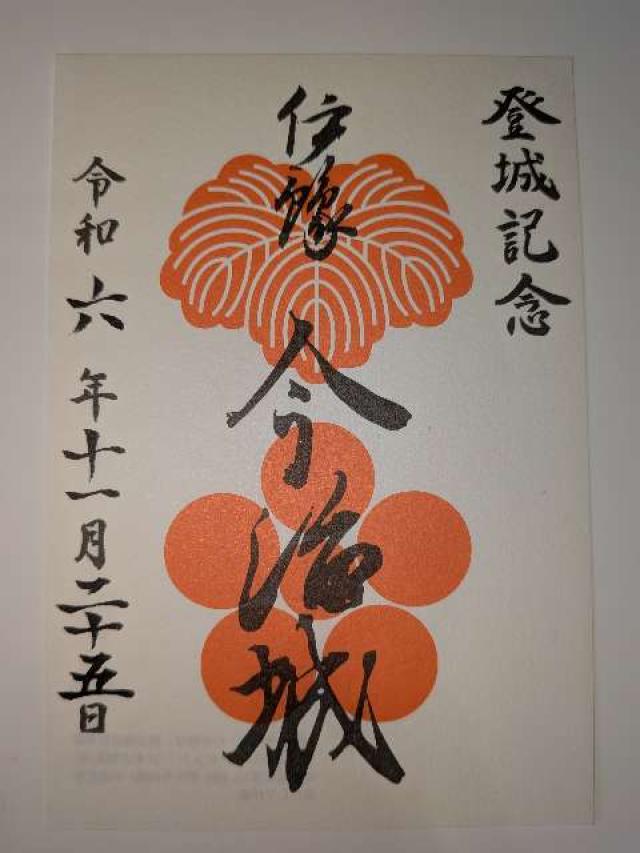 登城記念
伊豫 今治城
令和六年十一月二十五日